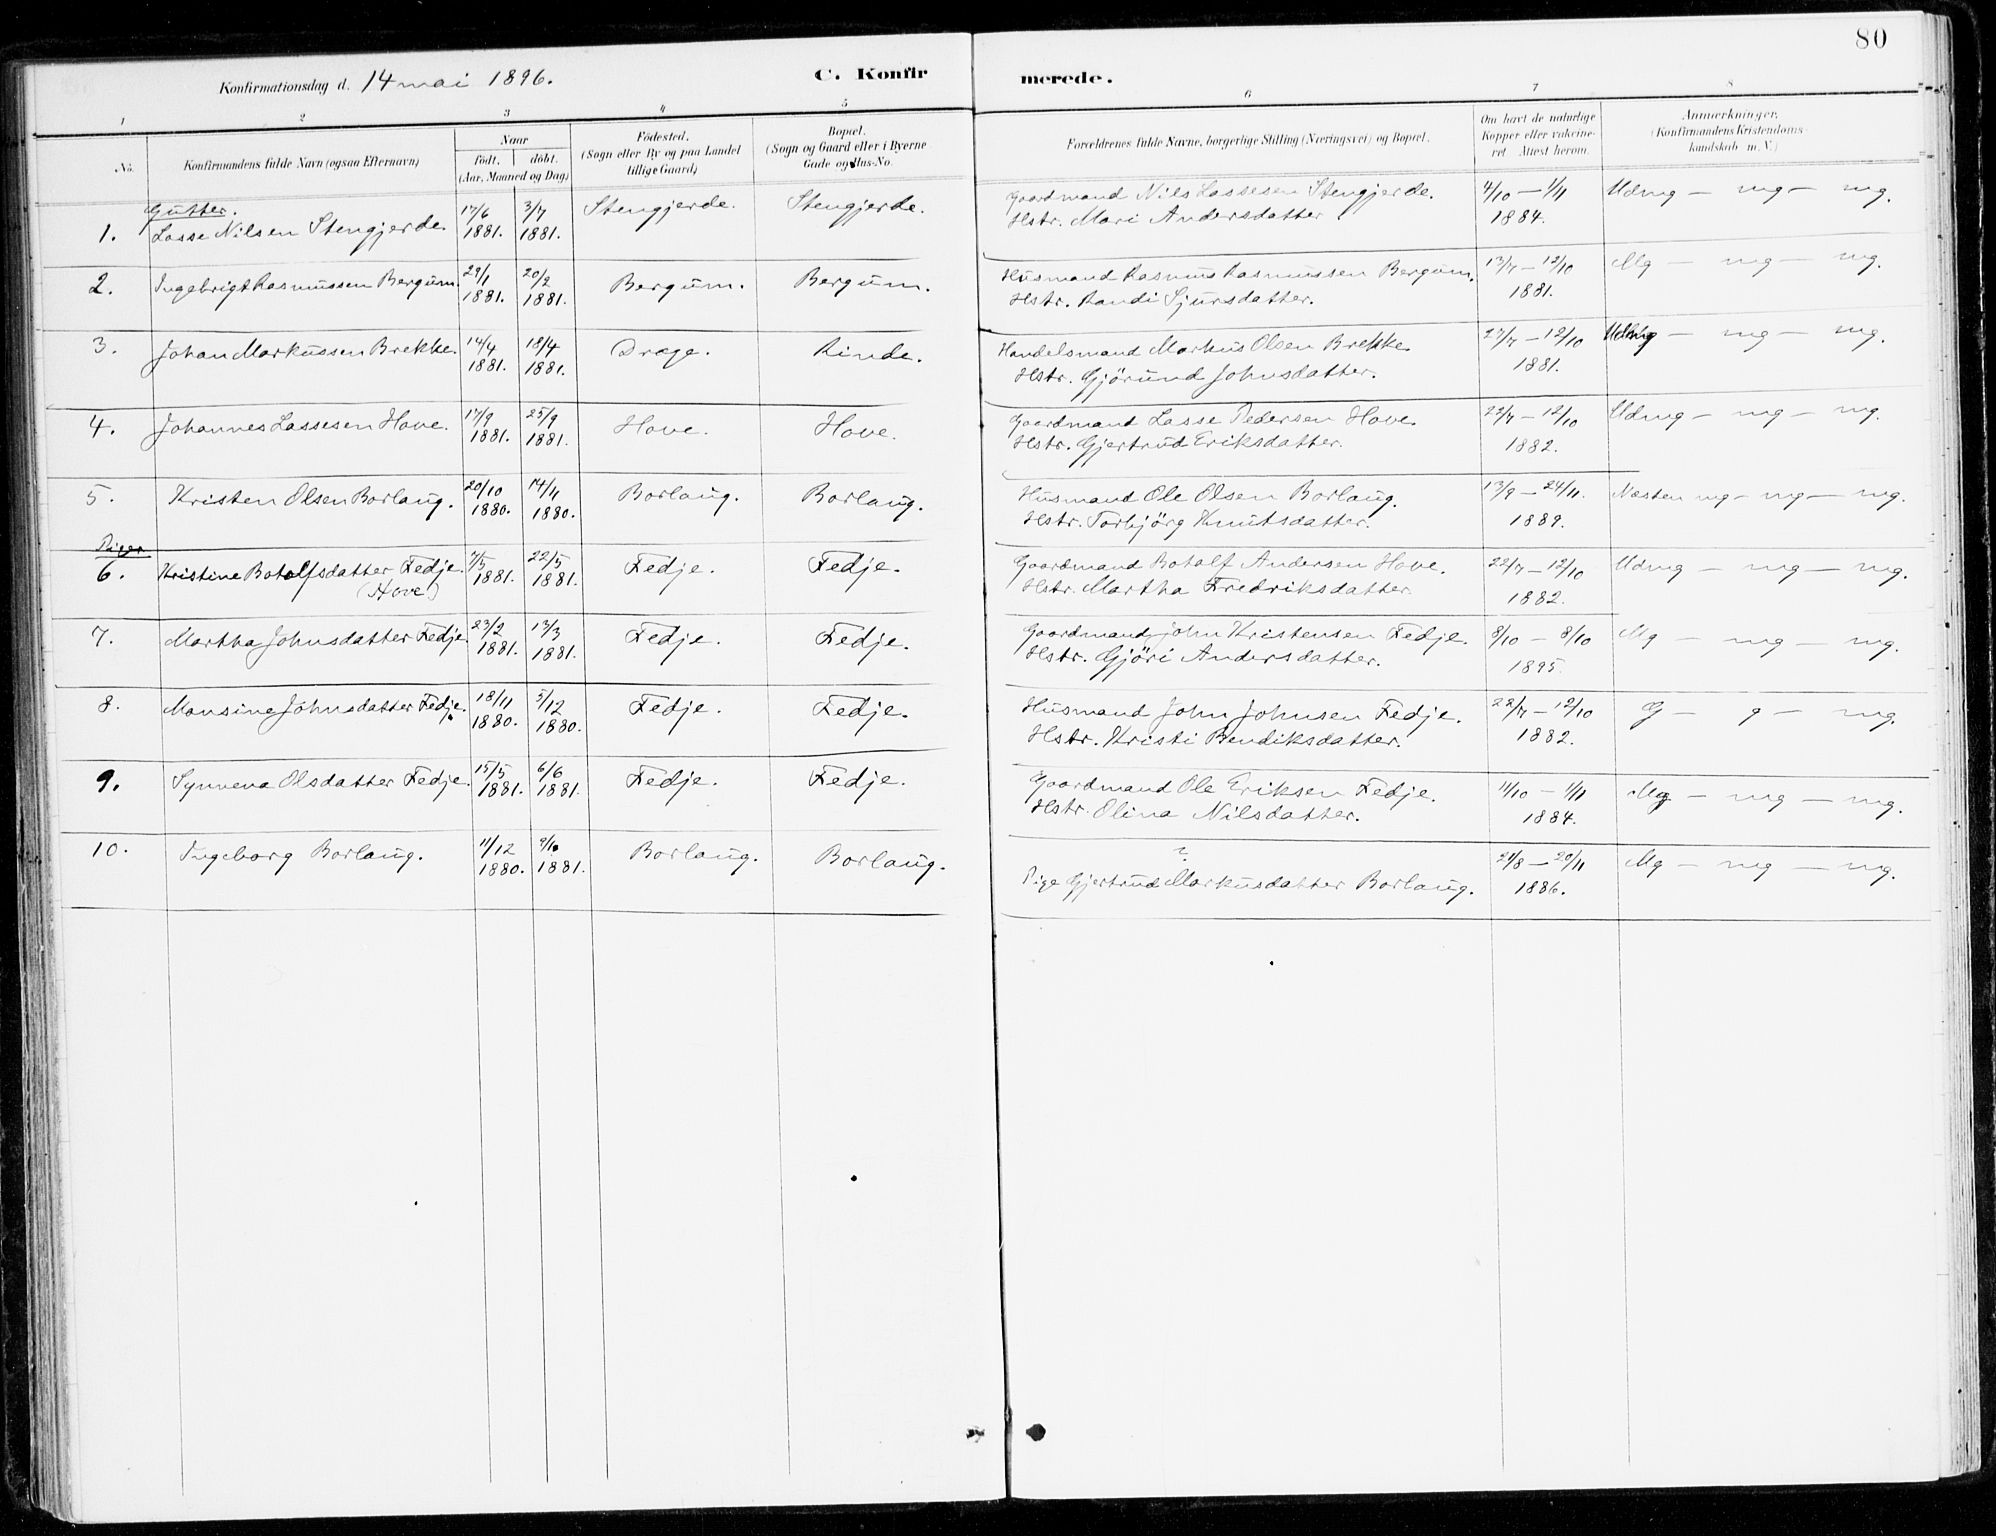 80
Konfirmationsdag d. 14 mai 1896.
C. Konfirmerede.
1 2 3 4 5 6 7 8
No. Konfirmandens fulde Navn (ogsaa Efternavn) Naar født. døbt. (Aar, Maaned og Dag) Fødested. (Sogn eller By og paa Landet tillige Gaard) Bopæl. (Sogn og Gaard eller i Byerne Gade og Hus-No. Forældrenes fulde Navne, borgerlige Stilling (Næringsvei) og Bopæl. Om havt de naturlige Kopper eller vakcineret. Attest herom. Anmærkninger. (Konfirmandens Kristendomskundskab m. V.)
Gutter.
1. Lasse Nilsen Stengjerde. 17/6 1881. 3/7 1881. Stengjerde. Stengjerde. Gaardmand Nils Lassesen Stengjerde. Hstr. Mari Andersdatter 4/10 — 1/11 1884. Udmg — mg — mg.
2. Ingebrigt Rasmussen Bergum. 29/1 1881. 20/2 1881. Bergum. Bergum. Husmand Rasmus Rasmussen Bergum. Hstr. Randi Sjursdatter. 13/7 — 12/10 1881. Mg — mg — mg.
3. Johan Markussen Brekke. 14/4 1881. 18/4 1881. Drage. Rinde. Handelsmand Markus Olsen Brekke Hstr. Gjörund Johnsdatter. 27/7 — 12/10 1881. Udmg — mg — mg.
4. Johannes Lassesen Hove. 17/9 1881. 25/9 1881. Hove. Hove. Gaardmand Lasse Pedersen Hove. Hstr. Gjertrud Eriksdatter. 22/7 — 12/10 1882. Udmg — mg — mg.
5. Kristen Olsen Borlaug. 20/10 1880. 14/11 1880. Borlaug. Borlaug. Husmand Ole Olsen Borlaug. Hstr. Torbjörg Knutsdatter. 13/9 — 24/11. 1889. Næsten mg — mg — mg.
Piger
6. Kristine Botolfsdatter Fedje. (Hove) 7/5 1881. 22/5 1881. Fedje. Fedje. Gaardmand Botolf Andersen Hove. Hstr. Martha Fredriksdatter. 22/7 — 12/10 1882. Udmg — mg — mg.
7. Martha Johnsdatter Fedje. 23/2 1881. 13/3 1881. Fedje. Fedje. Gaardmand John Kristensen Fedje. Hstr. Gjöri Andersdatter. 8/10 — 8/10 1895. Mg — mg — mg.
8. Monsine Johnsdatter Fedje. 18/11 1880. 5/12 1880. Fedje. Fedje. Husmand John Johnsen Fedje. Hstr. Kristi Bendiksdatter. 22/7 — 12/10 1882. G — g — mg.
9. Synneva Olsdatter Fedje. 15/5 1881. 6/6 1881. Fedje. Fedje. Gaardmand Ole Eriksen Fedje. Hstr. Olina Nilsdatter. 11/10 — 1/11 1884. Mg — mg — mg.
10. Ingeborg Borlaug. 11/12 1880. 9/10 1881. Borlaug. Borlaug. ? Pige Gjertrud Markusdatter Borlaug. 21/8 — 20/11 1886. Mg — mg — mg.